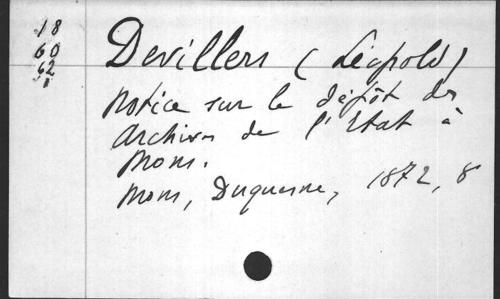 18
60
62
Devillers (Léopold)
Notice sur le dépôt des
Archives de l'Etat à
Mons.
Mons, Duquesne, 1872, 8